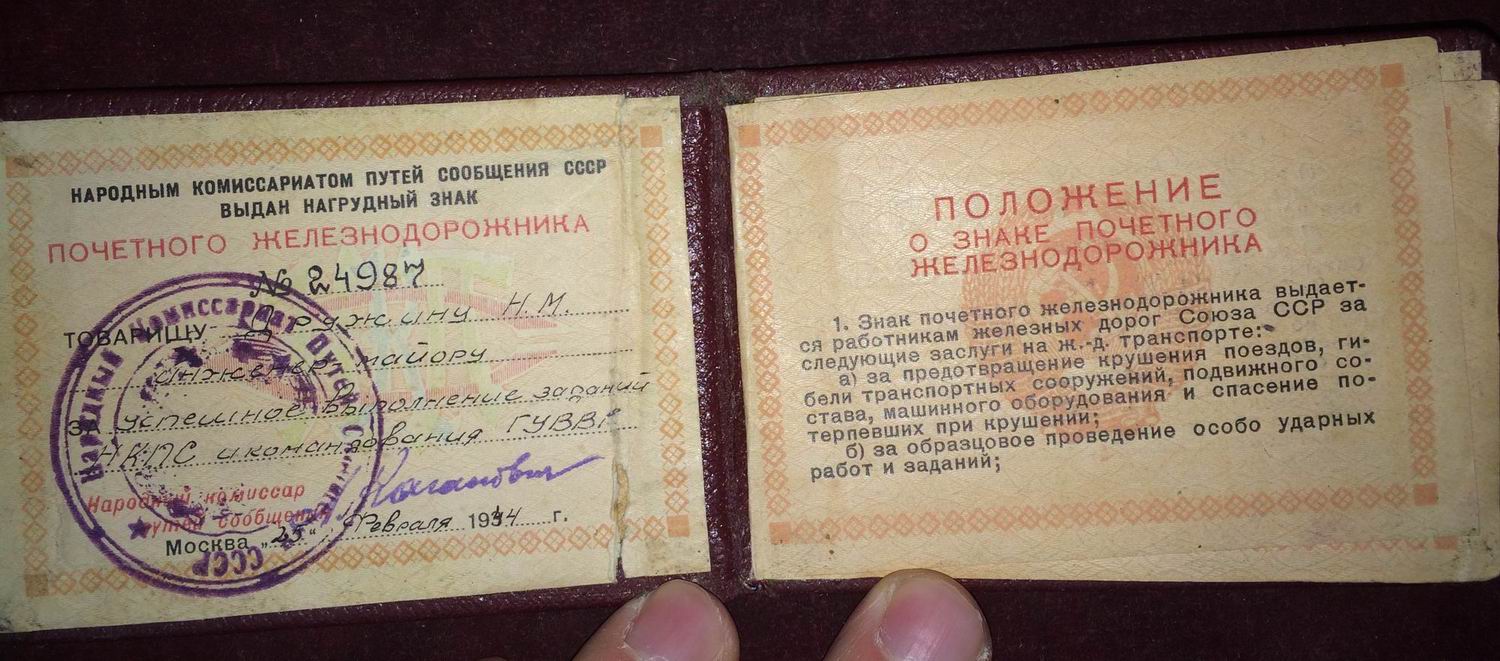 НАРОДНЫМ КОМИССАРИАТОМ ПУТЕЙ СООБЩЕНИЯ СССР
ВЫДАН НАГРУДНЫЙ ЗНАК
ПОЧЕТНОГО ЖЕЛЕЗНОДОРОЖНИКА
№ 24987
ТОВАРИЩУ Дружину Н.М.
инженер майору
ЗА успешное выполнение заданий
НКПС и командования ГУВВР
Народный комиссар
путей сообщения
Каганович
Москва „25“ Февраля 1944 г.
Народный Комиссариат Путей Сообщения
СССР
ПОЛОЖЕНИЕ
О ЗНАКЕ ПОЧЕТНОГО
ЖЕЛЕЗНОДОРОЖНИКА
1. Знак почетного железнодорожника выдает-
ся работникам железных дорог Союза ССР за
следующие заслуги на ж.-д. транспорте:
а) за предотвращение крушения поездов, ги-
бели транспортных сооружений, подвижного со-
става, машинного оборудования и спасение по-
терпевших при крушении;
б) за образцовое проведение особо ударных
работ и заданий;